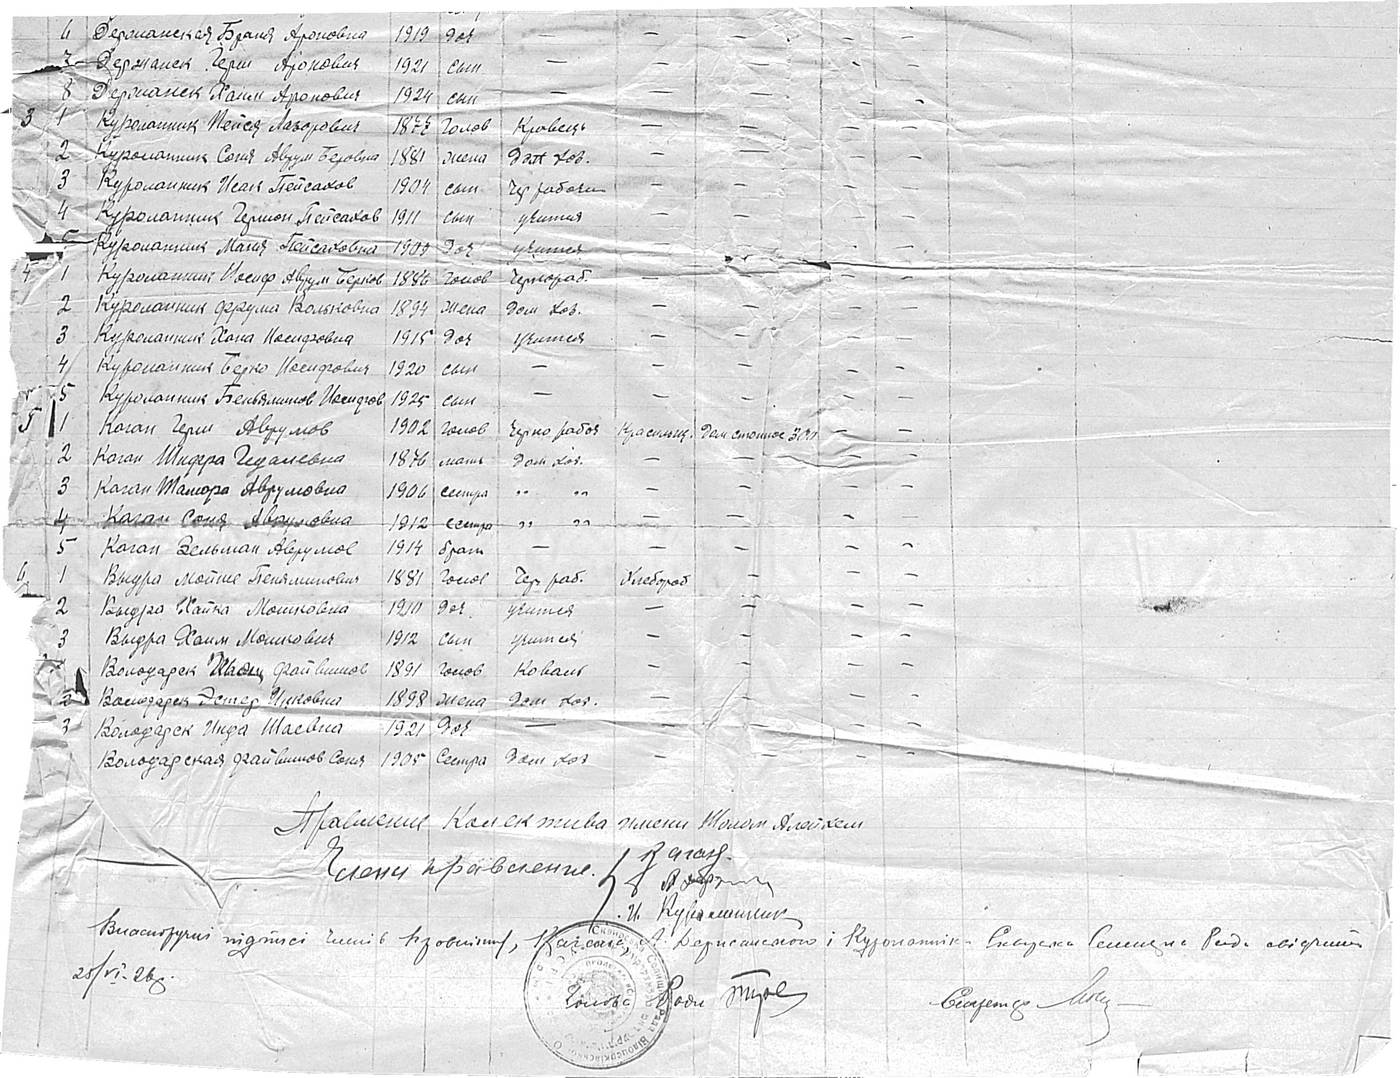 6 Держанская Браня Ароновна 1919 Доч —
7 Держанск Герш Аронович 1921 сын — — — — —
8 Держанск Хаим Аронович 1924 сын — — — — —
3 1 Куропатник Пейся Лазорович 1877 Голов Кровець — — — —
2 Куропатник Соня Аврум Беровна 1881 жена Дом хоз. — — — —
3 Куропатник Исак Пейсахов 1904 сын Чер рабочий — — — —
4 Куропатник Гершон Пейсахов 1911 сын учится — — — —
5 Куропатник Маня Пейсаховна 1909 Доч учится — — — —
4 1 Куропатник Иосиф Аврум Берков 1886 Голов Чернораб. — — — —
2 Куропатник Фрума Вольковна 1894 жена Дом хоз. — — — —
3 Куропатник Хана Иосифовна 1915 Доч учится — — — —
4 Куропатник Берко Иосифович 1920 сын — — — — —
5 Куропатник Беньяминов Иосифов 1925 сын — — — — —
5 1 Каган Герш Аврумов 1902 Голов Черно рабоч Красильщ. Дом стоимос 300 — —
2 Каган Шифра Гедалевна 1876 мать Дом хоз. — — — —
3 Каган Тамара Аврумовна 1906 сестра " " — — — —
4 Каган Соня Аврумовна 1912 сестра " " — — —
5 Каган Зельман Аврумов 1914 брат — — — — —
6 1 Выдра Мойше Пеняминович 1881 Голов Чер. раб. Хлебороб — — —
2 Выдра Хайка Мошковна 1910 Доч учится — — — —
3 Выдра Хаим Мошкович 1912 сын учится — — — —
Володарск Файвишов 1891 Голов Коваль — — — —
2 Володарск Эстер Инковна 1898 жена Дом хоз. — — — —
3 Володарск Инда Шаевна 1921 Доч — — — — —
Володарская Файвишов Соня 1905 Сестра Дом хоз — — — —
Правление Колектива имени Шолом Алейхем
Члени правление. Каган
И. Куропатник
Власноручні підписі членів Правлінні, Кагана, А. Держанського і Куропатніка Сквирска Селищна Рада свідчить
25/VI-26р.
Голова Ради Секретар